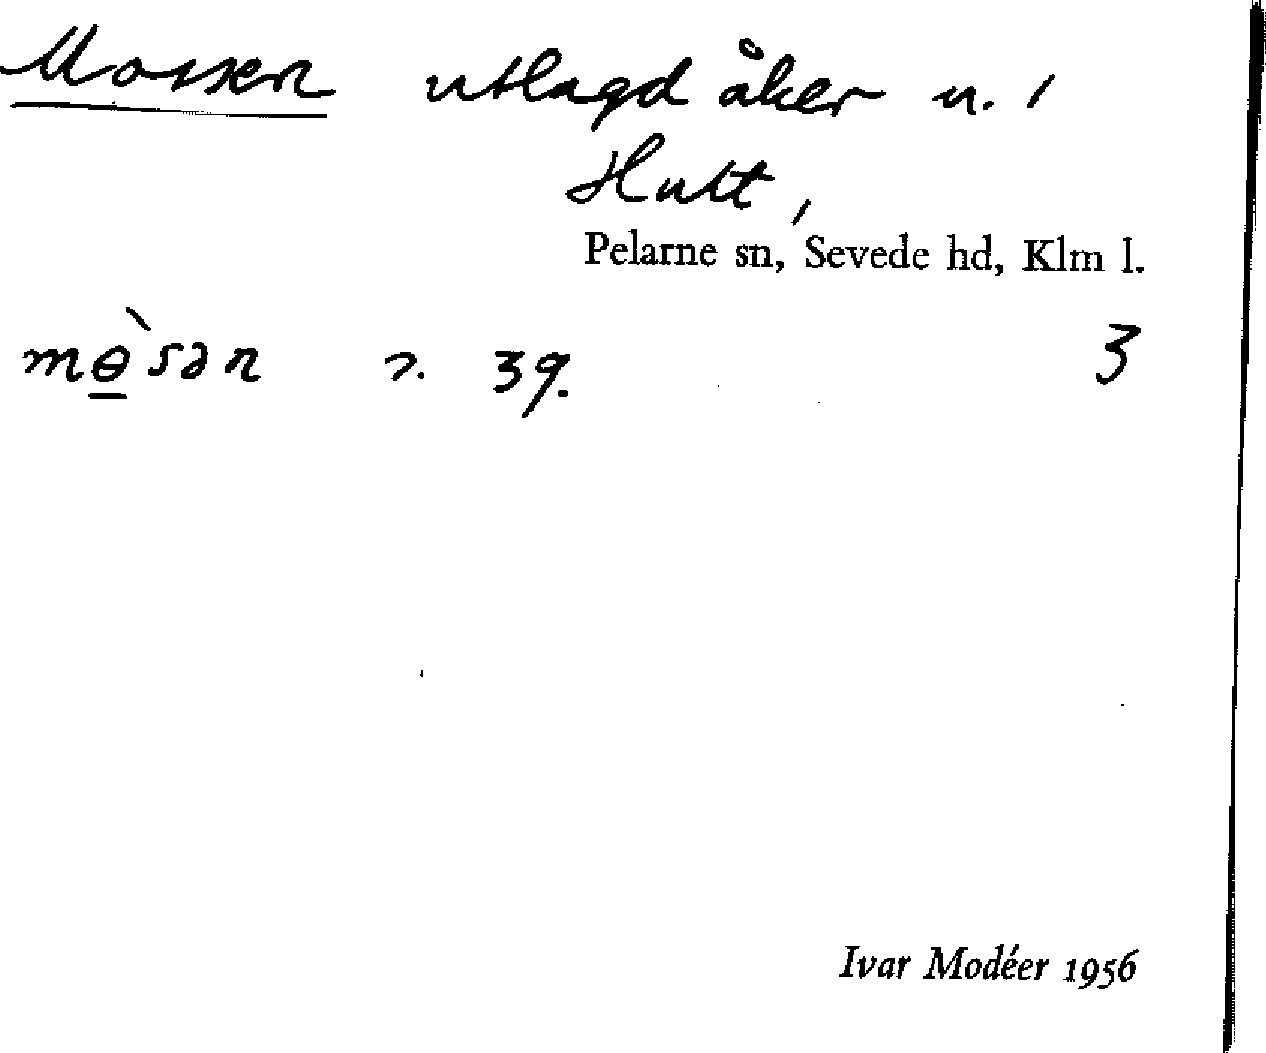 Mossen utlagd åker u. 1
Hult,
Pelarne sn, Sevede hd, Klm l.
mɵ̲̀sən 39. 3
Ivar Modéer 1956